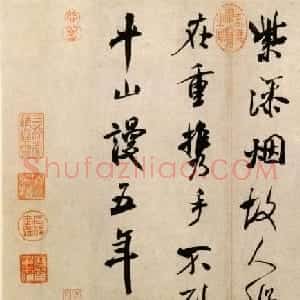 紫深烟故人縱
在重携手不到
平山謾五年
Shufaziliao.com